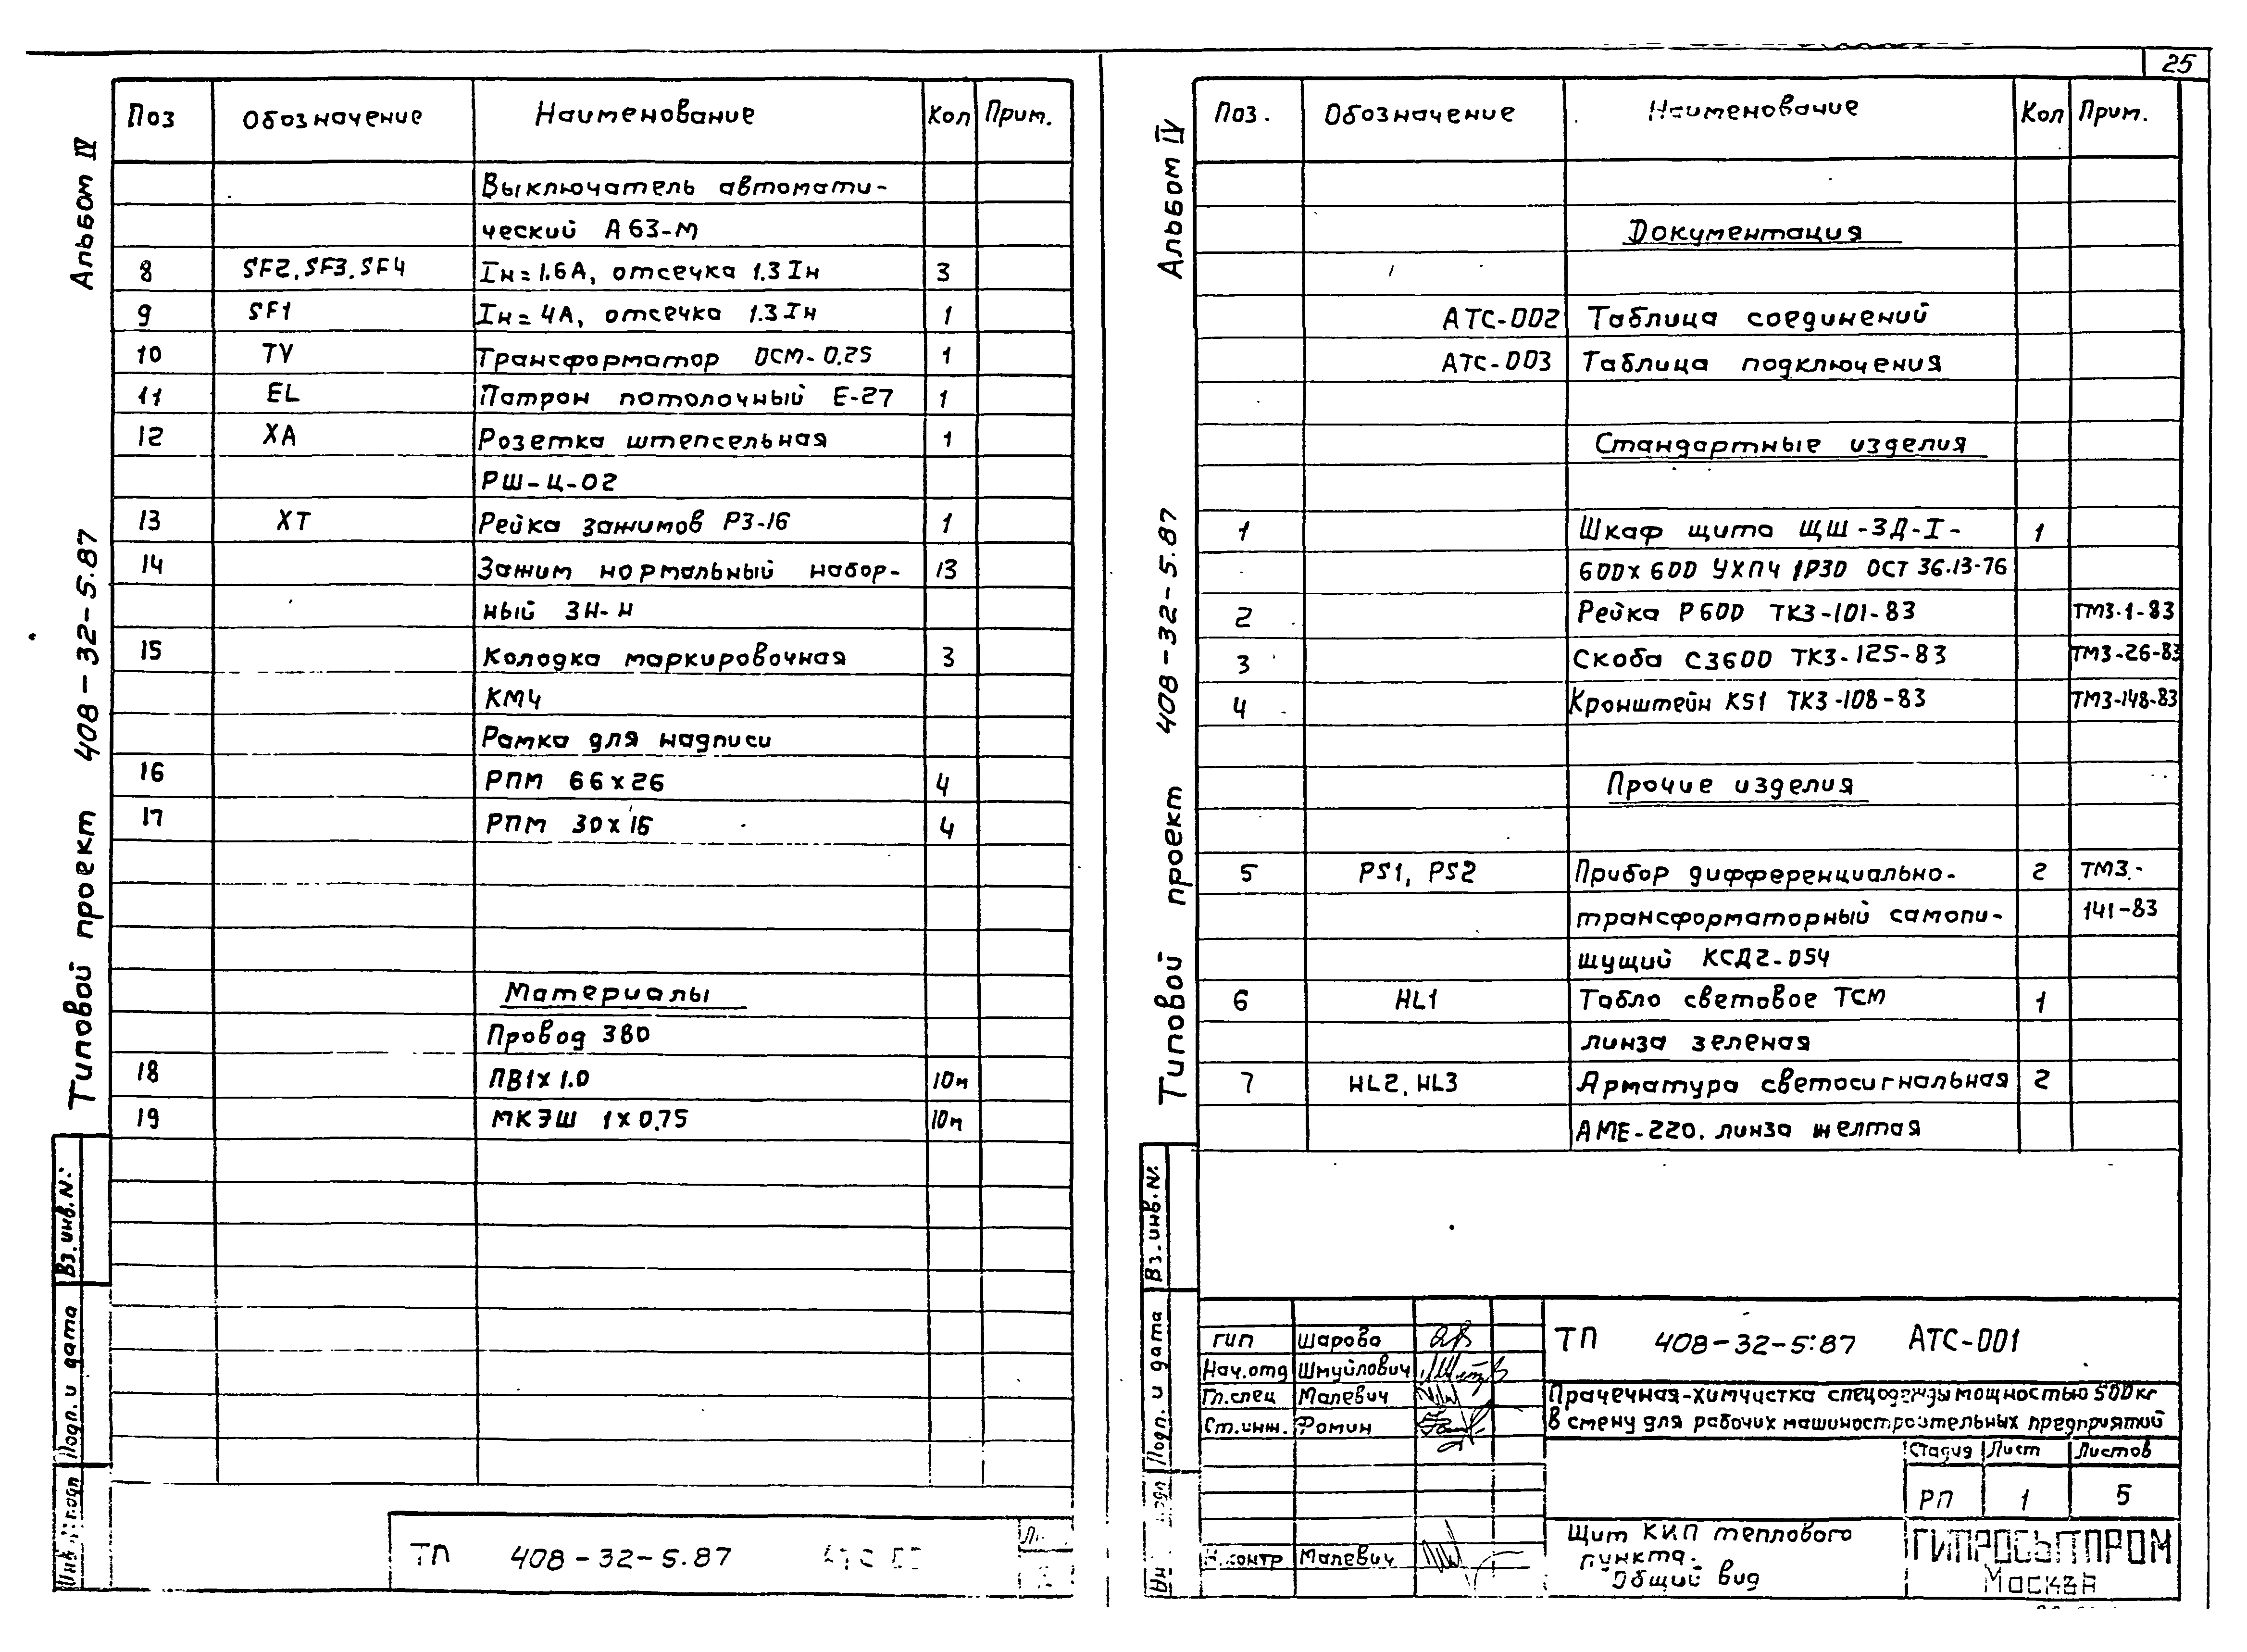 Альбом IV
Типовой проект 408-32-5.87
Поз Обозначение Наименование Кол Прим.
Выключатель автомати-
ческий А63-М
8 SF2, SF3, SF4 Iн=1.6А, отсечка 1.3Iн 3
9 SF1 Iн=4А, отсечка 1.3Iн 1
10 TV Трансформатор ОСМ-0.25 1
11 EL Патрон потолочный Е-27 1
12 ХА Розетка штепсельная 1
РШ-Ц-02
13 ХТ Рейка зажимов РЗ-16 1
14 Зажим нормальный набор- 13
ный ЗН-Н
15 Колодка маркировочная 3
КМЧ
Рамка для надписи
16 РПМ 66х26 4
17 РПМ 30х15 4
Материалы
Провод 380
18 ПВ1х1.0 10м
19 МКЭШ 1х0.75 10м
Вз.инв.№
Подп. и дата
Инв.№подл
ТП 408-32-5.87
25
Альбом IV
Типовой проект 408-32-5.87
Поз. Обозначение Наименование Кол Прим.
Документация
АТС-002 Таблица соединений
АТС-003 Таблица подключения
Стандартные изделия
1 Шкаф щита ЩШ-ЗД-I- 1
600х600 УХЛ4 IР30 ОСТ 36.13-76
2 Рейка Р600 ТК3-101-83 ТМ3-1-83
3 Скоба С3600 ТК3-125-83 ТМ3-26-83
4 Кронштейн К51 ТК3-108-83 ТМ3-148-83
Прочие изделия
5 PS1, PS2 Прибор дифференциально- 2 ТМ3.-
трансформаторный самопи- 141-83
шущий КСД2-054
6 HL1 Табло световое ТСМ 1
линза зеленая
7 HL2, HL3 Арматура светосигнальная 2
АМЕ-220. линза желтая
Вз.инв.№
Подп. и дата
ГИП Шарова
Нач.отд Шмуйлович
Гл.спец Малевич
Ст.инж. Фомин
Н.контр Малевич
ТП 408-32-5.87 АТС-001
Прачечная-химчистка спецодежды мощностью 500кг
в смену для рабочих машиностроительных предприятий
Стадия Лист Листов
РП 1 5
Щит КИП теплового
пункта.
Общий вид
ГИПРОБЫТПРОМ
Москва